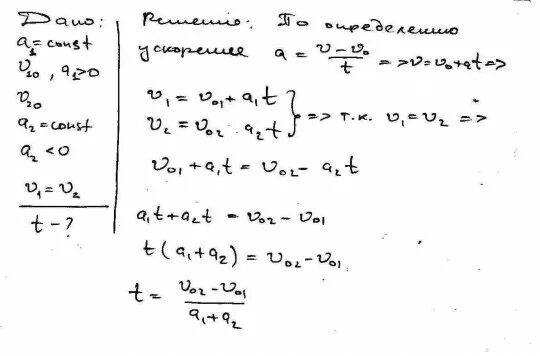 Дано:
a₁=const
v₁₀, a₁>0
v₂₀
a₂=const
a₂<0
v₁=v₂
t-?
Решение: По определению
ускорение a = (v-v₀)/t => v=v₀+at =>
v₁=v₀₁+a₁t
v₂=v₀₂ a₂t } => т.к. v₁=v₂ =>
v₀₁+a₁t=v₀₂-a₂t
a₁t+a₂t=v₀₂-v₀₁
t(a₁+a₂)=v₀₂-v₀₁
t= (v₀₂-v₀₁)/(a₁+a₂)